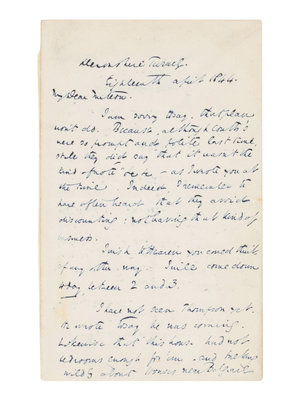 Devonshire Terrace
Eighteenth April 1844.
My Dear Mitton.
I am sorry to say, that plan
won't do. Because, although Coutts's
were so prompt and polite last time,
still they did say that it wasn't the
kind of note &c &c – as I wrote you at
the time. Indeed, I remember to
have often heard that they avoid
discounting: not having that kind of
business.
I wish to Heaven you could think
of any other way. I will come down
today between 2 and 3.
I have not seen Thompson yet.
He wrote to say he was coming.
Likewise that his house had not
bedrooms enough for em. and
wildly about houses near